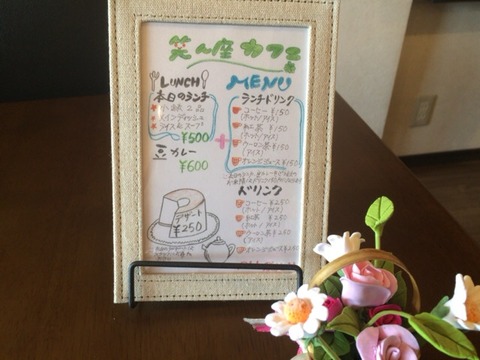 笑ん座カフェ
LUNCH
本日のランチ
小鉢2品
メインディッシュ
ライス&スープ
¥500
豆カレー
¥600
デザート
¥250
MENU
ランチドリンク
コーヒー ¥150
(ホット/アイス)
紅茶 ¥150
(ホット/アイス)
ウーロン茶 ¥150
(アイス)
オレンジジュース ¥150
ドリンク
コーヒー ¥250
(ホット/アイス)
紅茶 ¥250
(ホット/アイス)
ウーロン茶 ¥250
(アイス)
オレンジジュース ¥250